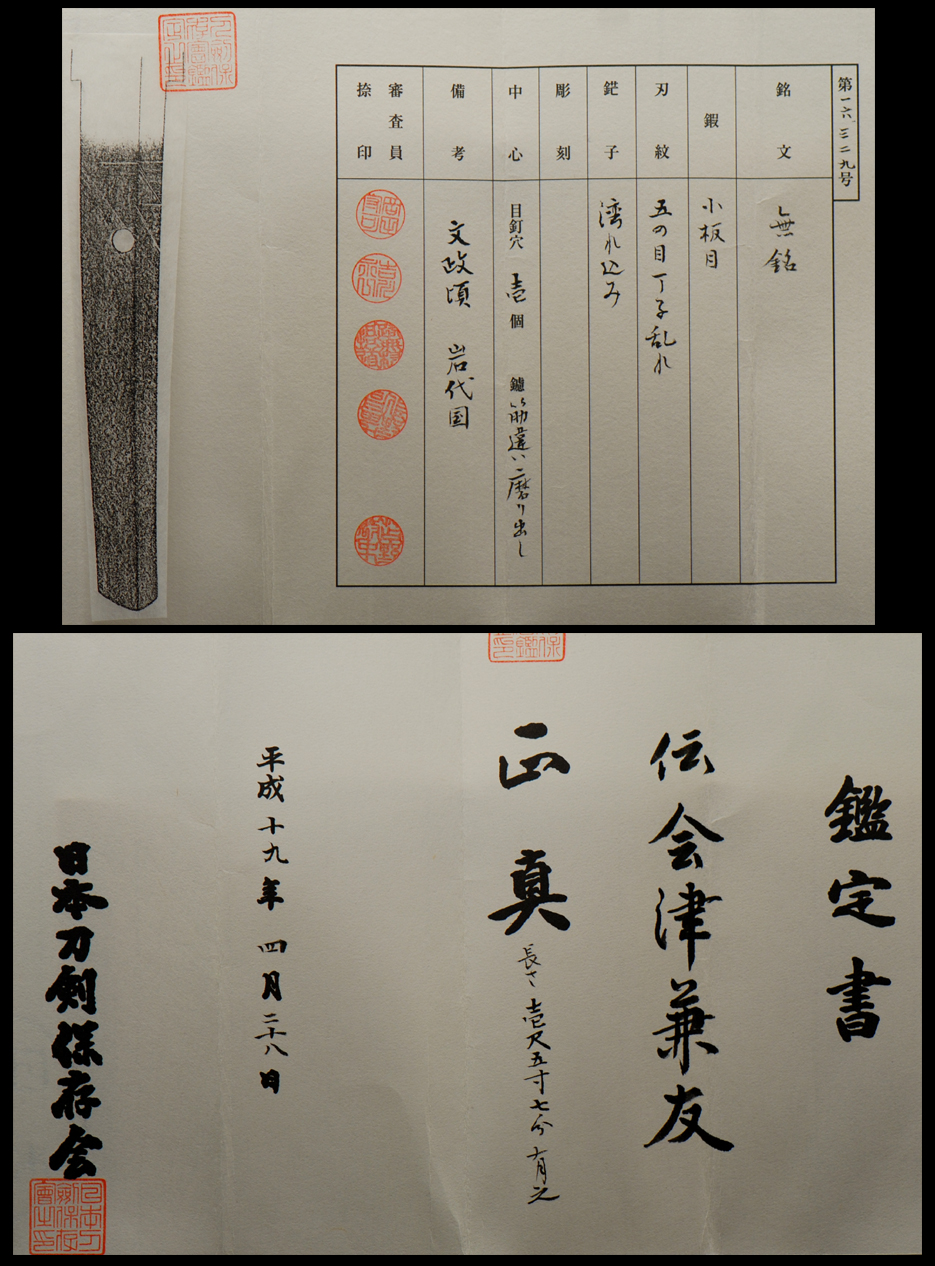 第一六三二九号
銘文
無銘
鍜
小板目
刃紋
五の目丁子乱れ
鋩子
湾れ込み
彫刻
中心
目釘穴 壱個 鑢 筋違い磨り出し
備考
文政頃 岩代国
審査員
捺印
鑑定書
伝会津兼友
正真
長さ 壱尺五寸七分 有之
平成十九年 四月二十八日
日本刀剣保存会